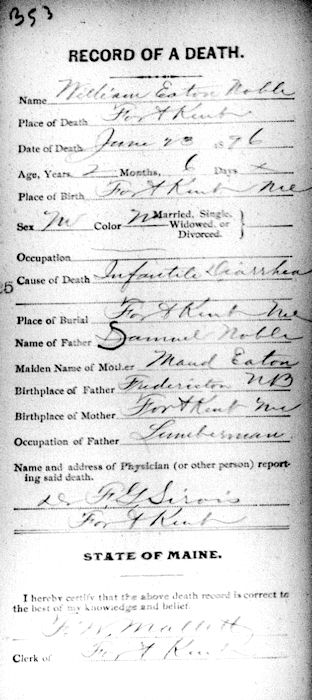 353
RECORD OF A DEATH.
Name William Eaton Noble
Place of Death Fort Kent
Date of Death June 23 1896
Age, Years 2 Months, 6 Days x
Place of Birth Fort Kent Me
Sex M Color W Married, Single, Widowed, or Divorced.
Occupation
Cause of Death Infantile Diarrhea
Place of Burial Fort Kent Me
Name of Father Samuel Noble
Maiden Name of Mother Maud Eaton
Birthplace of Father Fredericton NB
Birthplace of Mother Fort Kent Me
Occupation of Father Lumberman
Name and address of Physician (or other person) report-
ing said death.
Dr Sirois
Fort Kent
STATE OF MAINE.
I hereby certify that the above death record is correct to
the best of my knowledge and belief.
Mallett
Clerk of Fort Kent